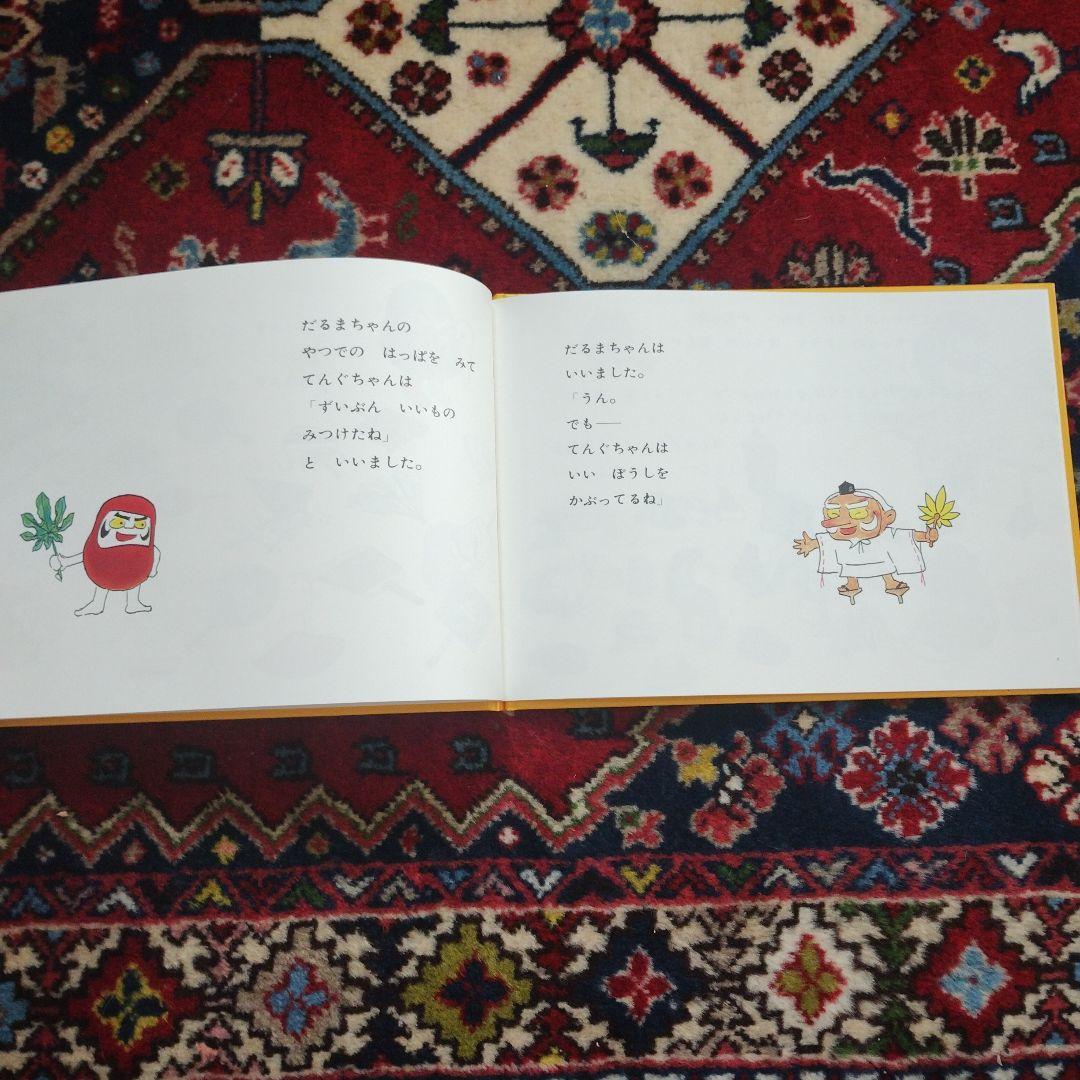 だるまちゃんの
やつでの　はっぱを　みて
てんぐちゃんは
「ずいぶん　いいもの
みつけたね」
と　いいました。
だるまちゃんは
いいました。
「うん。
でも――
てんぐちゃんは
いい　ぼうしを
かぶってるね」